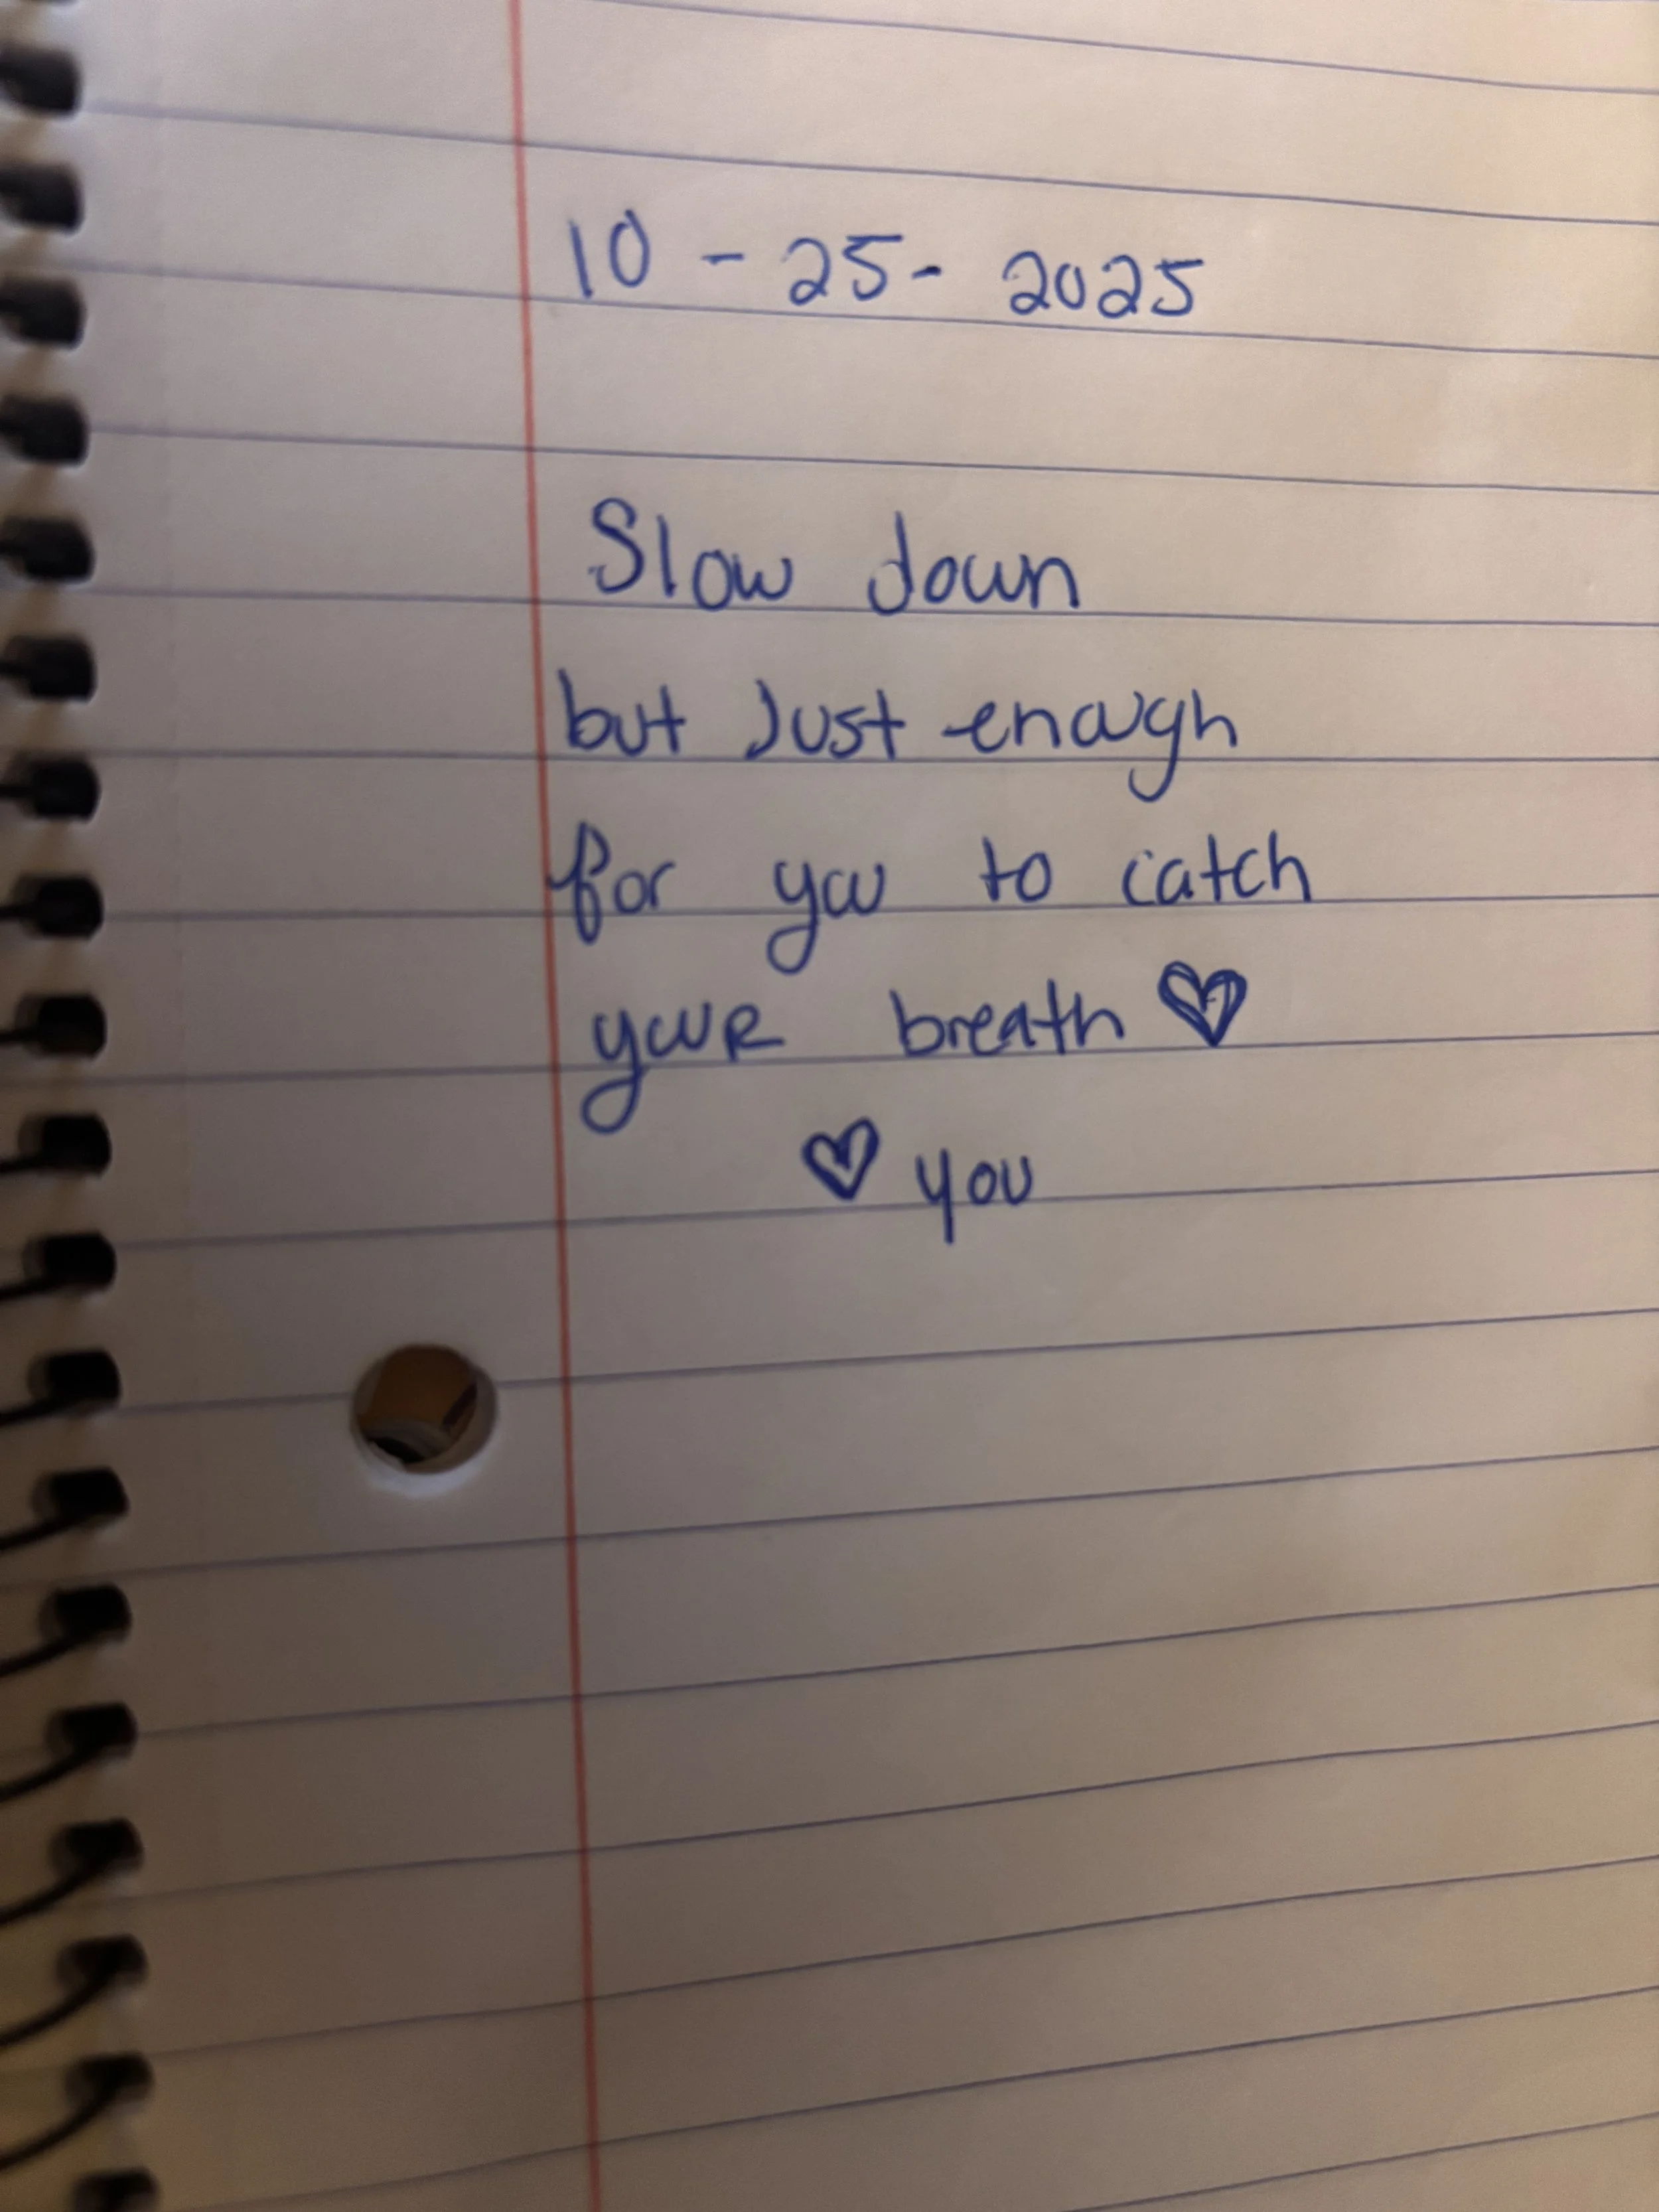 10 - 25 - 2025
Slow down
but Just enough
for you to catch
youR breath ♡
♡ you